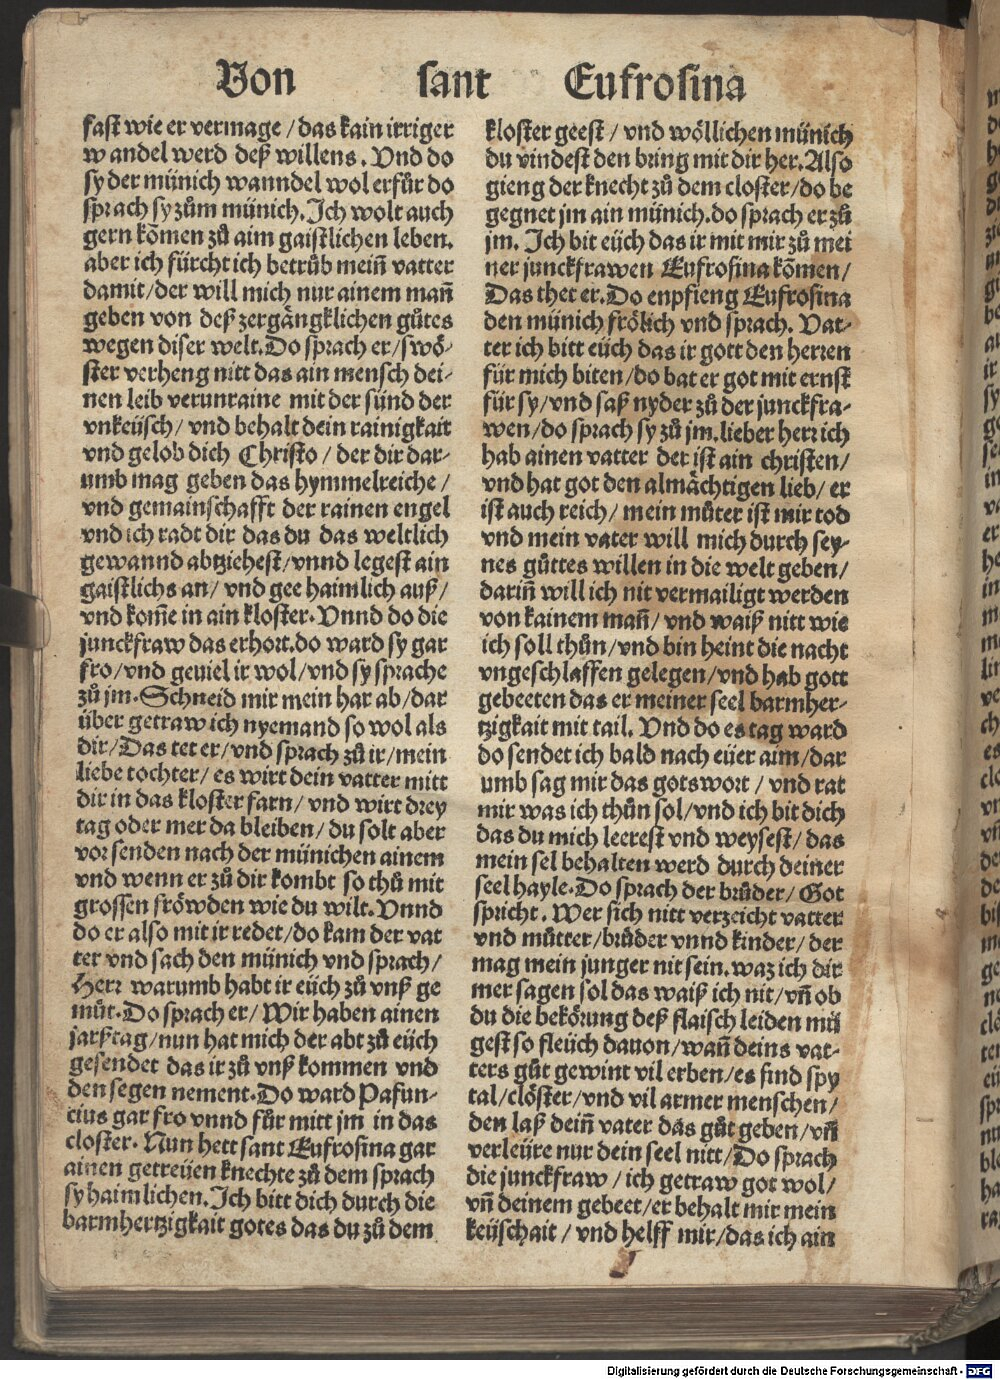 Von sant Eufrosina
fast wie er vermage / das kain irriger
wandel werd deß willens. Vnd do
sy der münich wanndel wol erfůr do
sprach sy zům münich. Ich wolt auch
gern kõmen zů aim gaistlichen leben.
aber ich fürcht ich betrůb mein̄ vatter
damit / der will mich nur ainem man̄
geben von deß zergångklichen gůtes
wegen diser welt. Do sprach er / swö-
ster verheng nitt das ain mensch dei-
nen leib verunraine mit der sünd der
vnkeüsch / vnd behalt dein rainigkait
vnd gelob dich Christo / der dir dar-
umb mag geben das hymmelreiche /
vnd gemainschafft der rainen engel
vnd ich radt dir das du das weltlich
gewannd abtziehest / vnnd legest ain
gaistlichs an / vnd gee haimlich auß /
vnd kom̄e in ain kloster. Vnnd do die
junckfraw das erhort. do ward sy gar
fro / vnd geviel ir wol / vnd sy sprache
zů jm. Schneid mir mein har ab / dar
über getraw ich nyemand so wol als
dir / Das tet er / vnd sprach zů ir / mein
liebe tochter / es wirt dein vatter mitt
dir in das kloster farn / vnd wirt drey
tag oder mer da bleiben / du solt aber
vor senden nach der münichen ainem
vnd wenn er zů dir kombt so thů mit
grossen fröwden wie du wilt. Vnnd
do er also mit ir redet / do kam der vat
ter vnd sach den münich vnd sprach /
Herr warumb habt ir eüch zů vnß ge
müt. Do sprach er / Wir haben ainen
jarßtag / nun hat mich der abt zů eüch
gesendet das ir zů vnß kommen vnd
den segen nement. Do ward Pafun-
cius gar fro vnnd für mitt jm in das
closter. Nun hett sant Eufrosina gar
ainen getreüen knechte zů dem sprach
sy haimlichen. Ich bitt dich durch die
barmhertzigkait gotes das du zů dem
kloster geest / vnd wöllichen münich
du vindest den bring mit dir her. Also
gieng der knecht zů dem closter / do be
gegnet jm ain münich. do sprach er zů
jm. Ich bit eüch das ir mit mir zů mei
ner junckfrawen Eufrosina kõmen /
Das thet er. Do enpfieng Eufrosina
den münich frölich vnd sprach. Vat-
ter ich bitt eüch das ir gott den herren
für mich biten / do bat er got mit ernst
für sy / vnd saß nyder zů der junckfra-
wen / do sprach sy zů jm. lieber herr ich
hab ainen vatter der ist ain christen /
vnd hat got den almåchtigen lieb / er
ist auch reich / mein můter ist mir tod
vnd mein vater will mich durch sey-
nes gůttes willen in die welt geben /
darin̄ will ich nit vermailigt werden
von kainem man̄ / vnd waiß nitt wie
ich soll thůn / vnd bin heint die nacht
vngeschlaffen gelegen / vnd hab gott
gebeeten das er meiner seel barmher-
tzigkait mit tail. Vnd do es tag ward
do sendet ich bald nach eüer aim / dar
umb sag mir das gotswort / vnd rat
mir was ich thůn sol / vnd ich bit dich
das du mich leerest vnd weysest / das
mein sel behalten werd durch deiner
seel hayle. Do sprach der brůder / Got
spricht. Wer sich nitt verzeicht vatter
vnd můtter / brůder vnnd kinder / der
mag mein junger nit sein. waz ich dir
mer sagen sol das waiß ich nit / vn̄ ob
du die bekörung deß flaisch leiden mü
gest so fleüch dauon / wan̄ deins vat-
ters gůt gewint vil erben / es sind spy
tal / clöster / vnd vil armer menschen /
den laß dein̄ vater das gůt geben / vn̄
verleüre nur dein seel nitt / Do sprach
die junckfraw / ich getraw got wol /
vn̄ deinem gebeet / er behalt mir mein
keüschait / vnd helff mir / das ich ain
Digitalisierung gefördert durch die Deutsche Forschungsgemeinschaft - DFG